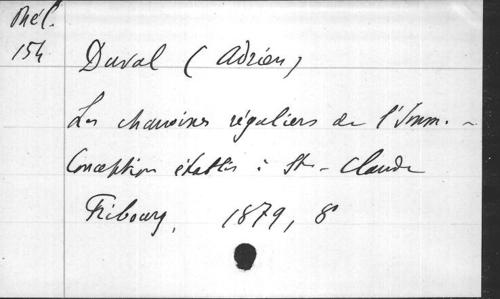 Mél.
154
Duval (Adrien)
Les chanoines réguliers de l'Imm.-
Conception établis à St-Claude
Fribourg, 1879, 8°